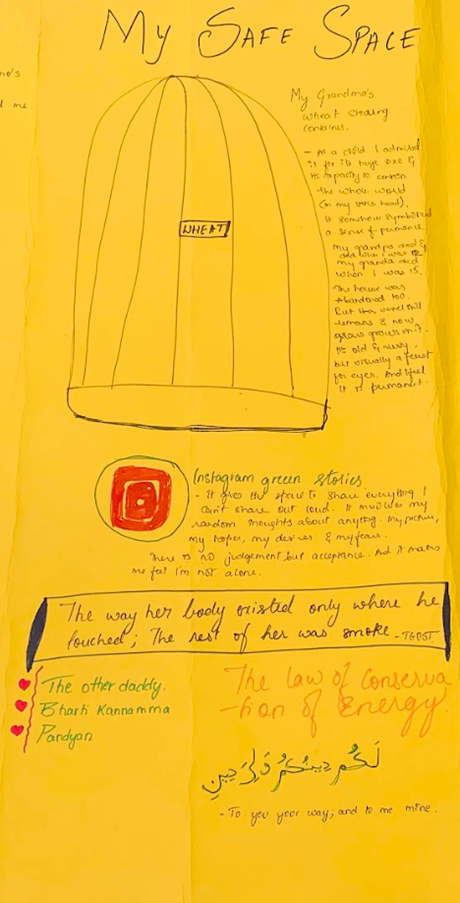 mo's
d me.
My Safe Space
My Grandmo's
wheat storing
container.
- As a child I admired
it for its huge size &
its capacity to contain
the whole world
(in my verse head).
It somehow symbolised
a sense of permanence.
My grandpa died &
when I was
my grandma died
when I was 15.
The house was
abandoned too.
But this vessel still
remains & now
grass grows on it.
It's old & rusty,
but visually a feast
for eyes. And I feel
it is permanent.
WHEAT
Instagram green stories
- It gives the space to share everything I
can't share out loud. It involves my
random thoughts about anything. My pictures,
my hopes, my desires & my fears.
There is no judgement but acceptance. And it makes
me feel I'm not alone.
The way her body existed only where he
touched; The rest of her was smoke - TGOST
The other daddy.
Bharti Kannamma
Pandyan
The law of conserva
-tion of Energy.
لَكُمْ دِينُكُمْ وَلِيَ دِينِ
- To you your way; and to me mine.